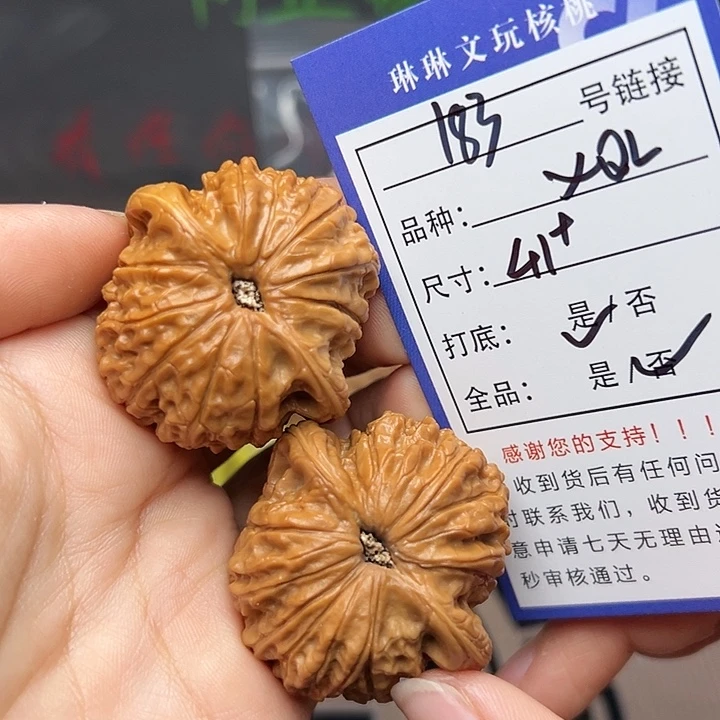 琳琳文玩核桃
183 号链接
品种: YQL
尺寸: 41+
打底: 是/否
全品: 是/否
感谢您的支持!!!
收到货后有任何问
时联系我们，收到货
意申请七天无理由
秒审核通过。